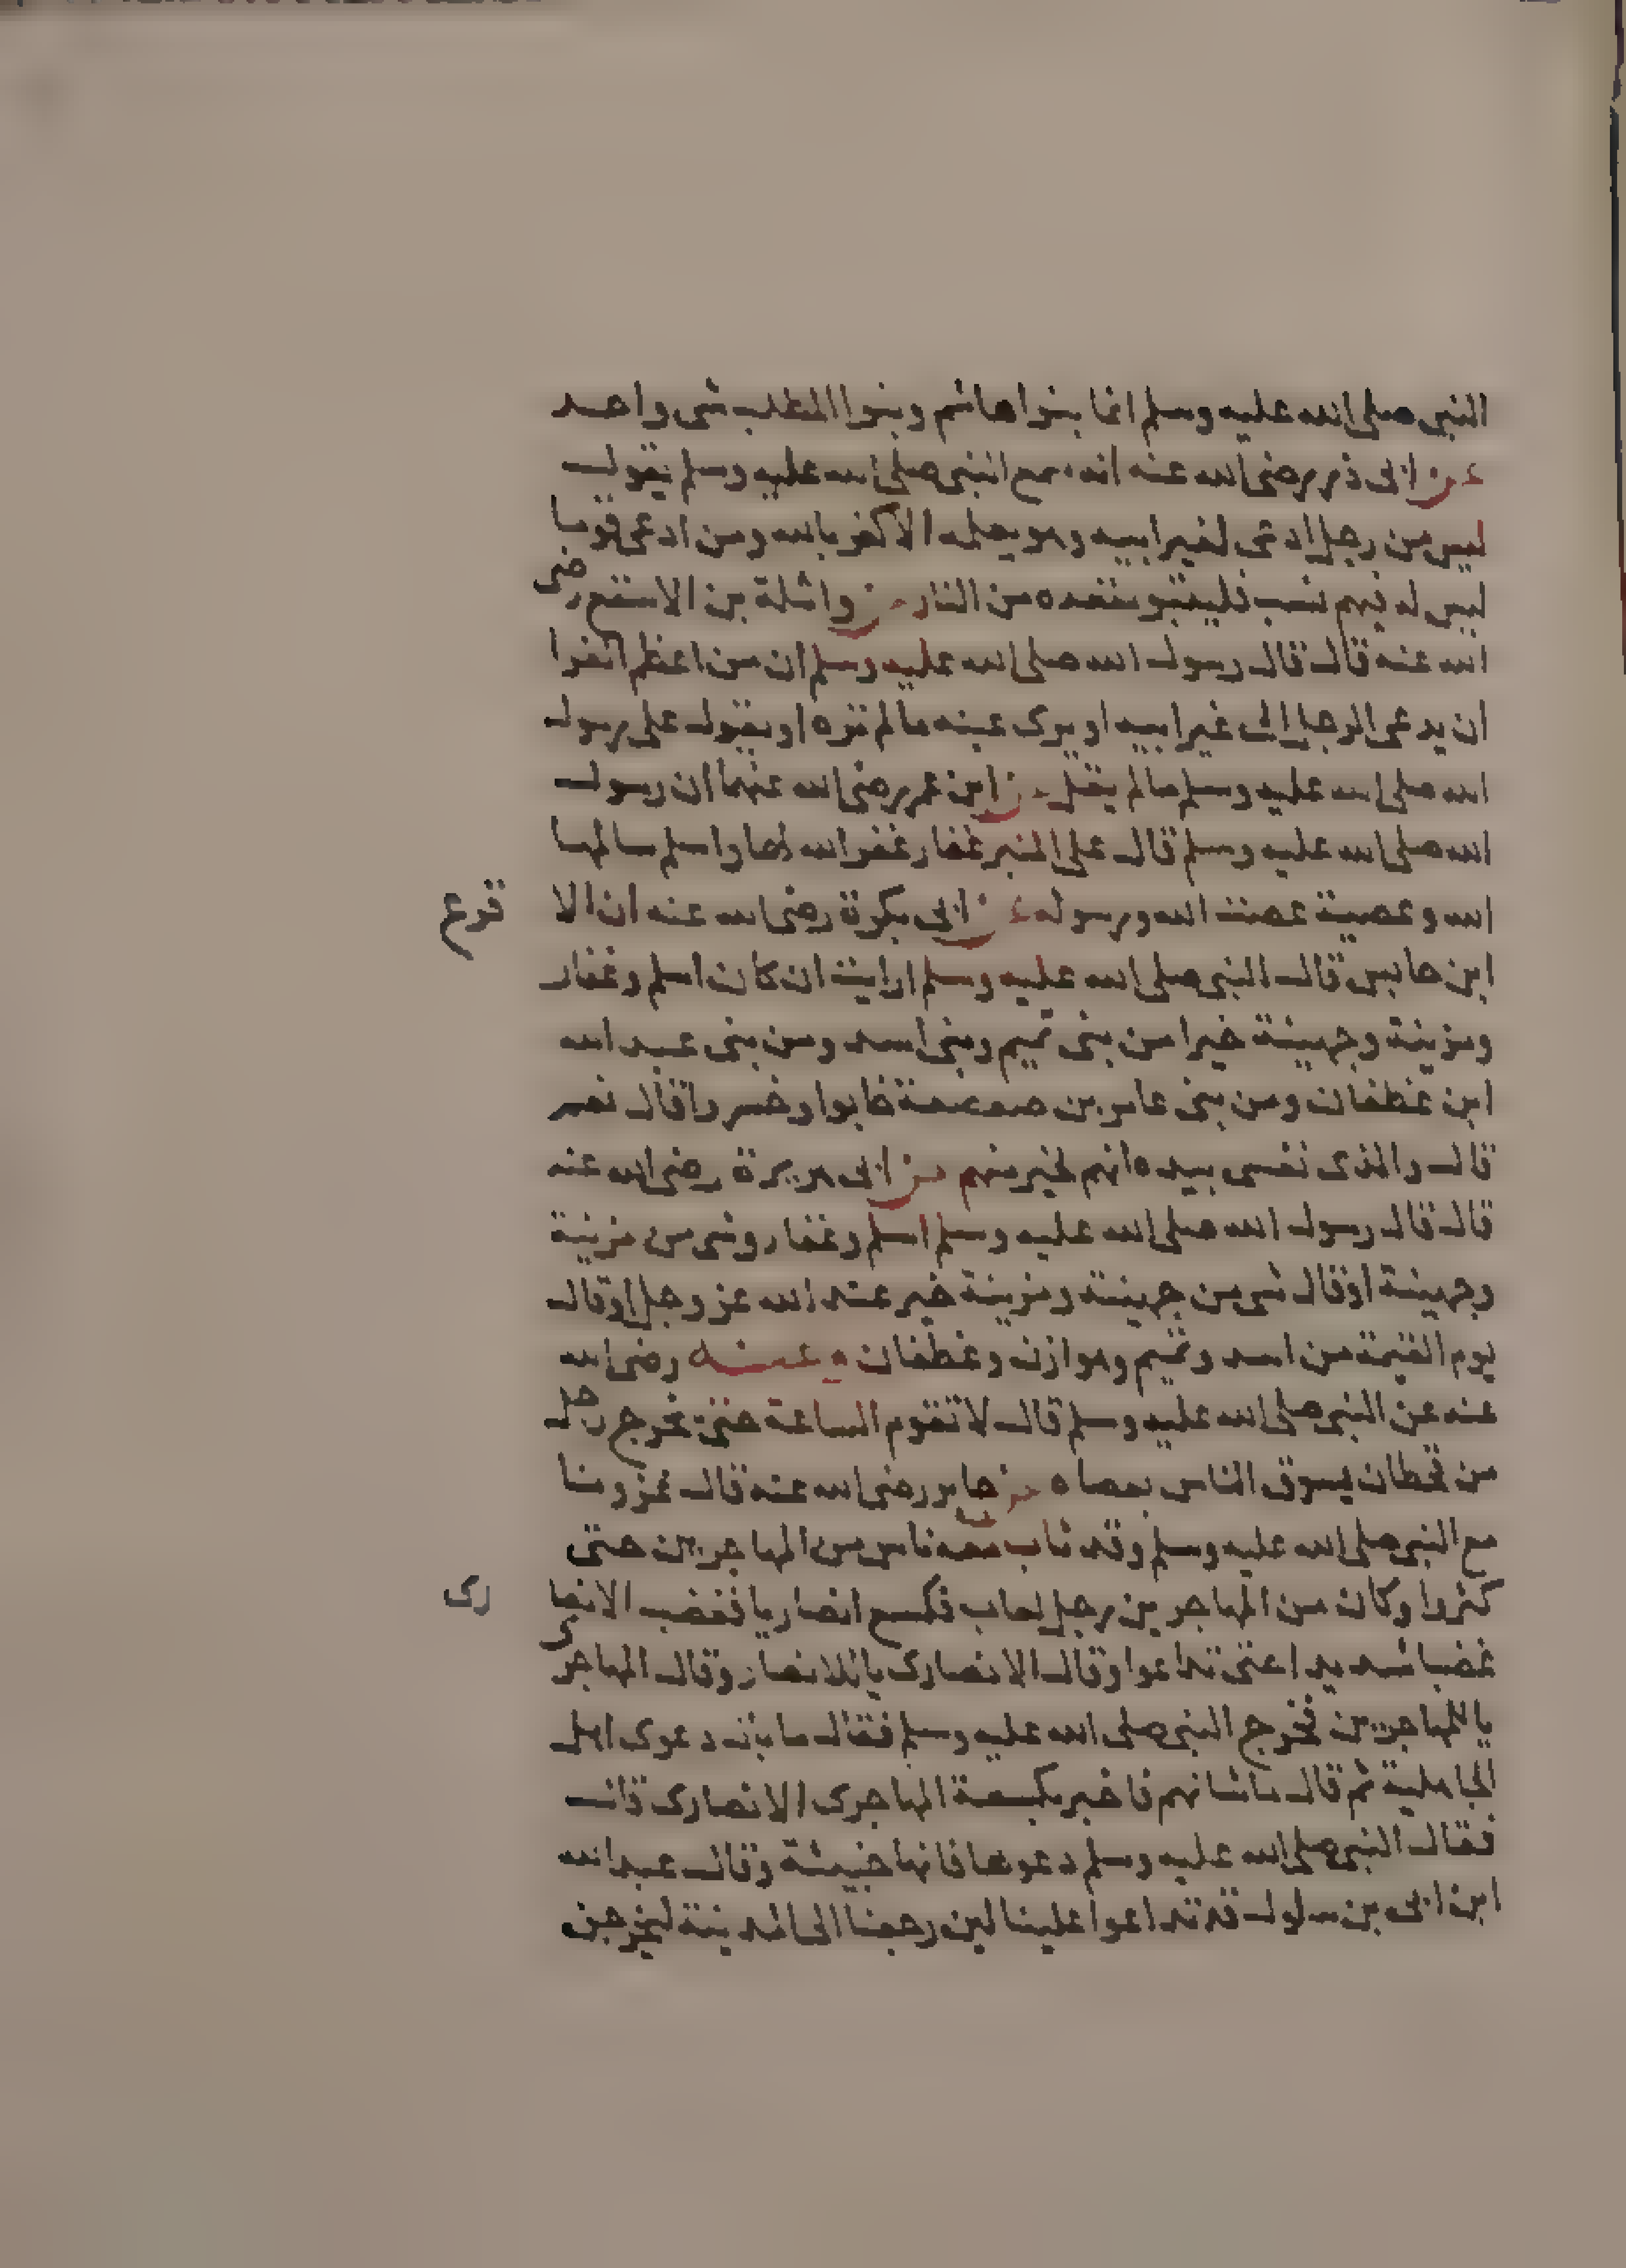 النبى صلى الله عليه وسلم انما بنوا هاشم وبنوا المطلب شى واحد
عن ابى ذر رضى الله عنه انه سمع النبى صلى الله عليه وسلم يقول
ليس من رجل ادعى لغير ابيه وهو يعلمه الا كفر بالله ومن ادعى قوما
ليس له فيهم نسب فليتبو مقعده من النار عن واثلة بن الاسقع رضى
الله عنه قال قال رسول الله صلى الله عليه وسلم ان من اعظم الفرا
ان يدعى الرجل الى غير ابيه او يرى عينه مالم تره او يقول على رسول
الله صلى الله عليه وسلم مالم يقل عن ابن عمر رضى الله عنهما ان رسول
الله صلى الله عليه وسلم قال على المنبر غفار غفر الله لها واسلم سالمها
الله وعصية عصت الله ورسوله عن ابى بكرة رضى الله عنه ان الا
قرع
ابن حابس قال النبى صلى الله عليه وسلم ارايت ان كان اسلم وغفار
ومزينة وجهينة خيرا من بنى تميم وبنى اسد ومن بنى عبد الله
ابن غطفان ومن بنى عامر بن صعصعة خابوا وخسروا قال نعم
قال والذى نفسى بيده انهم لخير منهم عن ابى هريرة رضى الله عنه
قال قال رسول الله صلى الله عليه وسلم اسلم وغفار وشى من مزينة
وجهينة او قال شى من جهينة ومزينة خير عند الله عز وجل او قال
يوم القيمة من اسد وتميم وهوازن وغطفان وعنه رضى الله
عنه عن النبى صلى الله عليه وسلم قال لا تقوم الساعة حتى يخرج رجل
من قحطان يسوق الناس بعصاه عن جابر رضى الله عنه قال غزونا
مع النبى صلى الله عليه وسلم وقد ثاب معه ناس من المهاجرين حتى
كثروا وكان من المهاجرين رجل لعاب فكسع انصاريا فغضب الانصا
رى
غضبا شديدا حتى تداعوا وقال الانصارى يا للانصار وقال المهاجرى
يا للمهاجرين فخرج النبى صلى الله عليه وسلم فقال ما بال دعوى اهل
الجاهلية ثم قال ما شانهم فاخبر بكسعة المهاجرى الانصارى قال
فقال النبى صلى الله عليه وسلم دعوها فانها خبيثة وقال عبد الله
ابن ابى بن سلول قد تداعوا علينا لين رجعنا الى المدينة ليخرجن